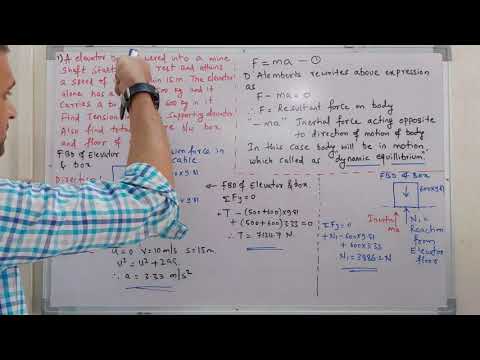 1) A elevator being lowered into a mine
shaft starts from rest and attains
a speed of 10 m/s within 15m. The elevator
alone has a mass 500 kg and it
carries a box of 600 kg in it
Find Tension in cable Supporting elevator
Also find total force b/w box
and floor of
FBD of Elevator
& Box
Direction
Tension force in
cable
u=0 v=10m/s s=15m
v² = u² + 2as
∴ a = 3.33 m/s²
← FBD of Elevator & box.
ΣFy=0
+T - (500+600)×9.81
+ (500+600) 3.33 = 0
∴ T = 7134.7 N
F = ma — ①
D'Alemberts rewrites above expression
as
F - ma = 0
F = Resultant force on body
"-ma" Inertial force acting opposite
to direction of motion of body
In this case body will be in motion
which called as "dynamic equilibrium".
FBD of Box
600×9.81
Inertia
ma
N₁ =
Reaction
from
Elevator
floor
ΣFy=0
+N₁ - 600×9.81
+ 600×3.33
N₁ = 3886 N